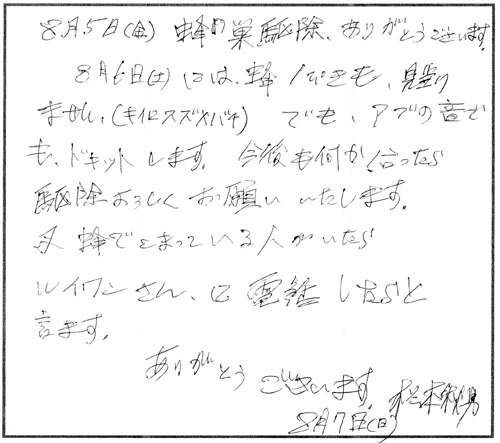 8月5日(金) 蜂の巣駆除、ありがとうございます。
8月6日(土)には、蜂1ぴきも、見当り
ません、(キイロスズメバチ) でも、アブの音で
も、ドキットします。今後も何か言ったら
駆除よろしくお願いいたします。
又蜂でこまっている人がいたら
ルイワンさん、に電話したらと
言ます。
ありがとうございます。松本
8月7日(日)